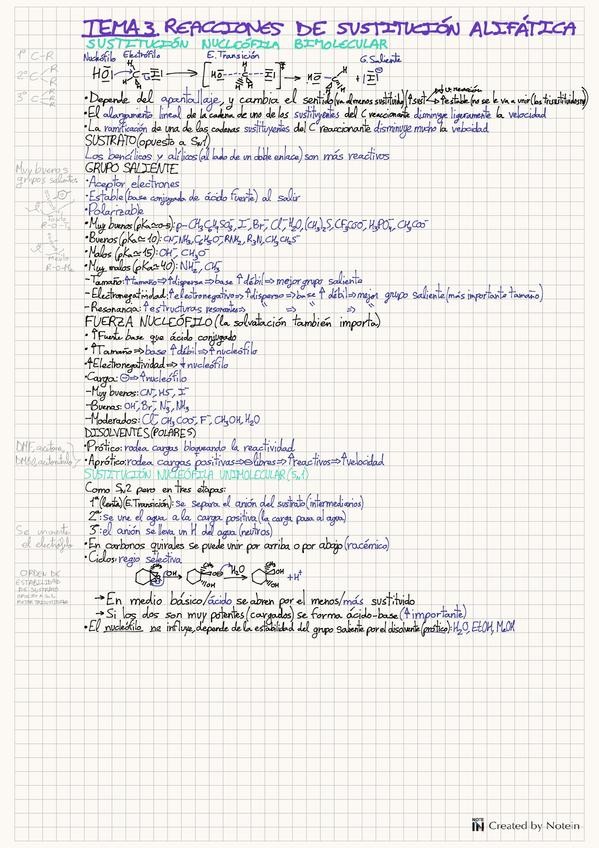 TEMA 3. REACCIONES DE SUSTITUCIÓN ALIFÁTICA
SUSTITUCIÓN NUCLEÓFILA BIMOLECULAR
1º C-R
2º C-R R
3º C-R R R
Nucleófilo Electrófilo E. Transición G. Saliente
•Depende del apantallaje, y cambia el sentido
•El alargamiento lineal de la cadena de uno de los sustituyentes del C reaccionante disminuye ligeramente la velocidad
•La ramificación de una de las cadenas sustituyentes del C reaccionante disminuye mucho la velocidad
SUSTRATO (opuesto a SN1)
Los bencílicos y alílicos (al lado de un doble enlace) son más reactivos
GRUPO SALIENTE
Muy buenos grupos salientes
•Aceptor electrones
•Estable (base conjugada de ácido fuerte) al salir
•Polarizable
•Muy buenos (pKa≈0-5): p-CH3C6H4SO3-, I-, Br-, Cl-, H2O, (CH3)2S, CF3COO-, H2PO4-, CH3COO-
•Buenos (pKa≈10): CN-, NH3, C6H5O-, RNH2, R3N, CH3CH2S-
•Malos (pKa≈15): OH-, CH3O-
•Muy malos (pKa≈40): NH2-, CH3-
-Tamaño: ↑tamaño⇒↑dispersa⇒base ↑débil⇒mejor grupo saliente
-Electronegatividad: ↑electronegativo⇒↑disperso⇒base ↑ débil⇒mejor grupo saliente (más importante tamaño)
-Resonancia: ↑estructuras resonantes⇒ " ⇒ " ⇒ "
FUERZA NUCLEÓFILO (la solvatación también importa)
•↑Fuerte base que ácido conjugado
•↑Tamaño⇒base ↑débil⇒↑nucleófilo
•↑Electronegatividad⇒↓nucleófilo
•Carga: ⊖⇒↑nucleófilo
-Muy buenos: CN-, HS-, I-
-Buenos: OH-, Br-, N3-, NH3
-Moderados: Cl-, CH3COO-, F-, CH3OH, H2O
DISOLVENTES (POLARES)
•Prótico: rodea cargas bloqueando la reactividad
•Aprótico: rodea cargas positivas⇒⊖libres⇒↑reactivos⇒↑velocidad
SUSTITUCIÓN NUCLEÓFILA UNIMOLECULAR (SN1)
Como SN2 pero en tres etapas:
1ª (lenta) (E. Transición): se separa el anión del sustrato (intermediarios)
2ª: se une el agua a la carga positiva (la carga pasa al agua)
3ª: el anión se lleva un H del agua (neutros)
•En carbonos quirales se puede unir por arriba o por abajo (racémico)
•Ciclos: regio selectiva
ORDEN DE ESTABILIDAD DE SUSTRATO
H2O
OH
+H+
→En medio básico/ácido se abren por el menos/más sustituido
→Si los dos son muy potentes (cargados) se forma ácido-base (↑importante)
•El nucleófilo no influye, depende de la estabilidad del grupo saliente por el disolvente (prótico): H2O, EtOH, MeOH
NOTE IN Created by Notein